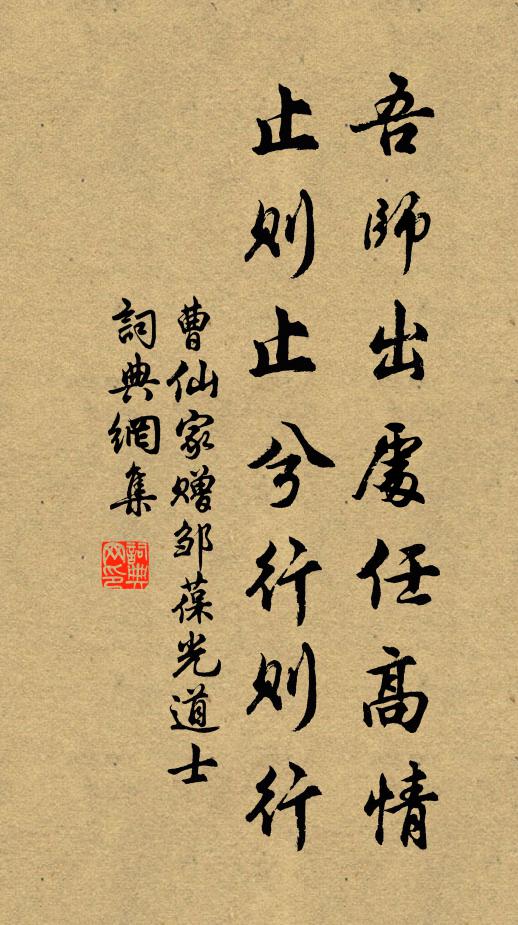 吾師出處任高情
止則止兮行則行
曹仙家赠邹葆光道士
詞典網集
詞典网印